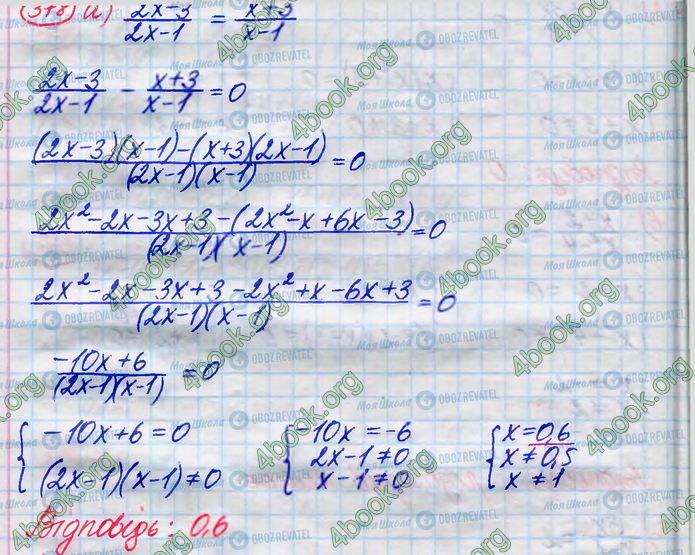 а) (2x-3)/(2x-1) = (x+3)/(x-1)
(2x-3)/(2x-1) - (x+3)/(x-1) = 0
((2x-3)(x-1)-(x+3)(2x-1))/((2x-1)(x-1)) = 0
(2x²-2x-3x+3-(2x²-x+6x-3))/((2x-1)(x-1)) = 0
(2x²-2x-3x+3-2x²+x-6x+3)/((2x-1)(x-1)) = 0
(-10x+6)/((2x-1)(x-1)) = 0
{ -10x+6=0 { -10x=-6 { x=0,6
2x-1≠0 x≠0,5
(2x-1)(x-1)≠0 x-1≠0 x≠1
Відповідь: 0,6
4book.org
Моя Школа
OBOZREVATEL